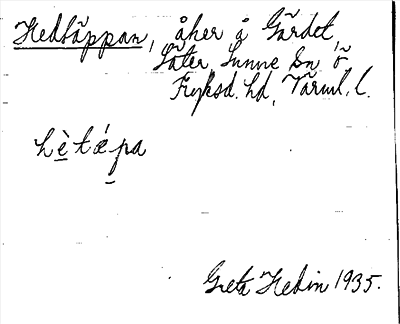 Hedtäppan, åker å Gärdet,
Säter, Sunne sn, Ö
Fryksd. hd, Värml. l.
hè̠tǽpa̠
Greta Hedin 1935.